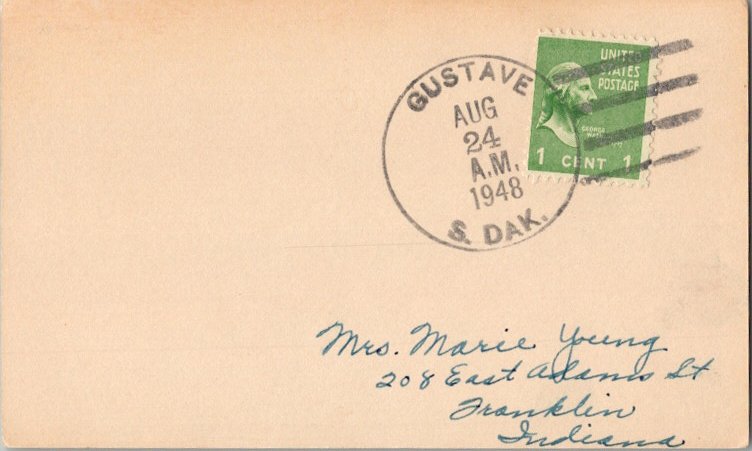 GUSTAVE
AUG
24
A.M.
1948
S. DAK.
UNITED
STATES
POSTAGE
GEORGE
1 CENT 1
Mrs. Marie Young
208 East Adams St
Franklin
Indiana